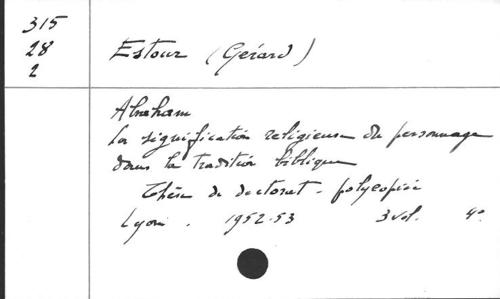 315
28
2
Estour (Gérard)
Abraham
La signification religieuse du personnage
dans la tradition biblique
Thèse de doctorat - polycopiée
Lyon. 1952-53 3 vol. 4°